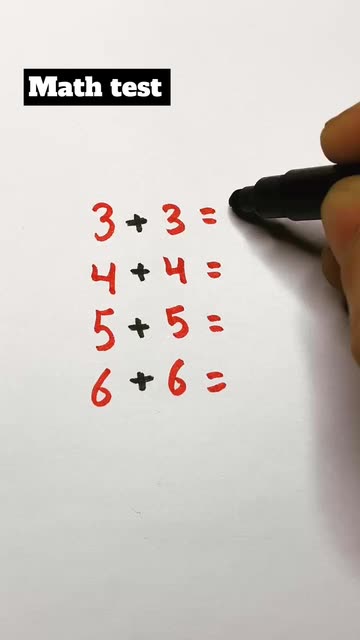 Math test
3 + 3 =
4 + 4 =
5 + 5 =
6 + 6 =